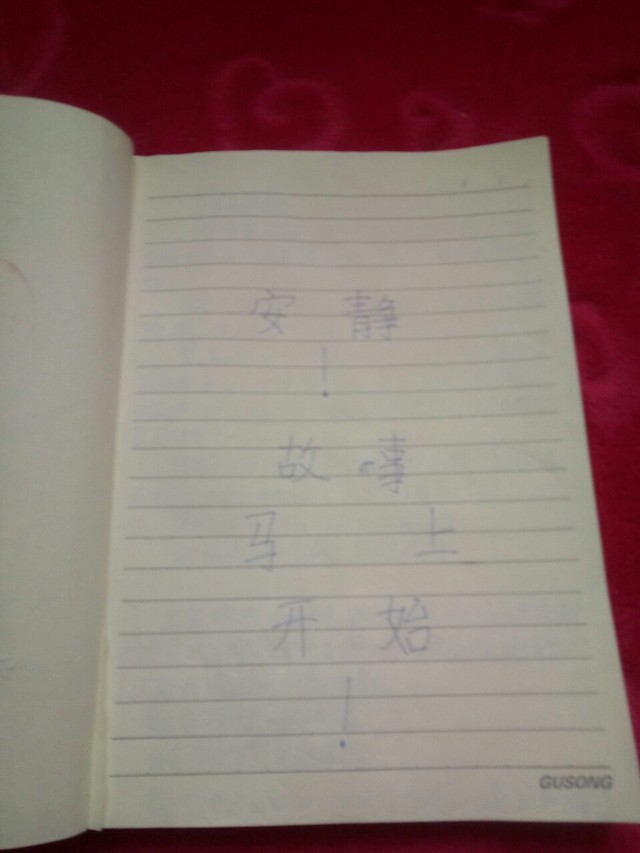 安静
!
故事
马上
开始
!
GUSONG